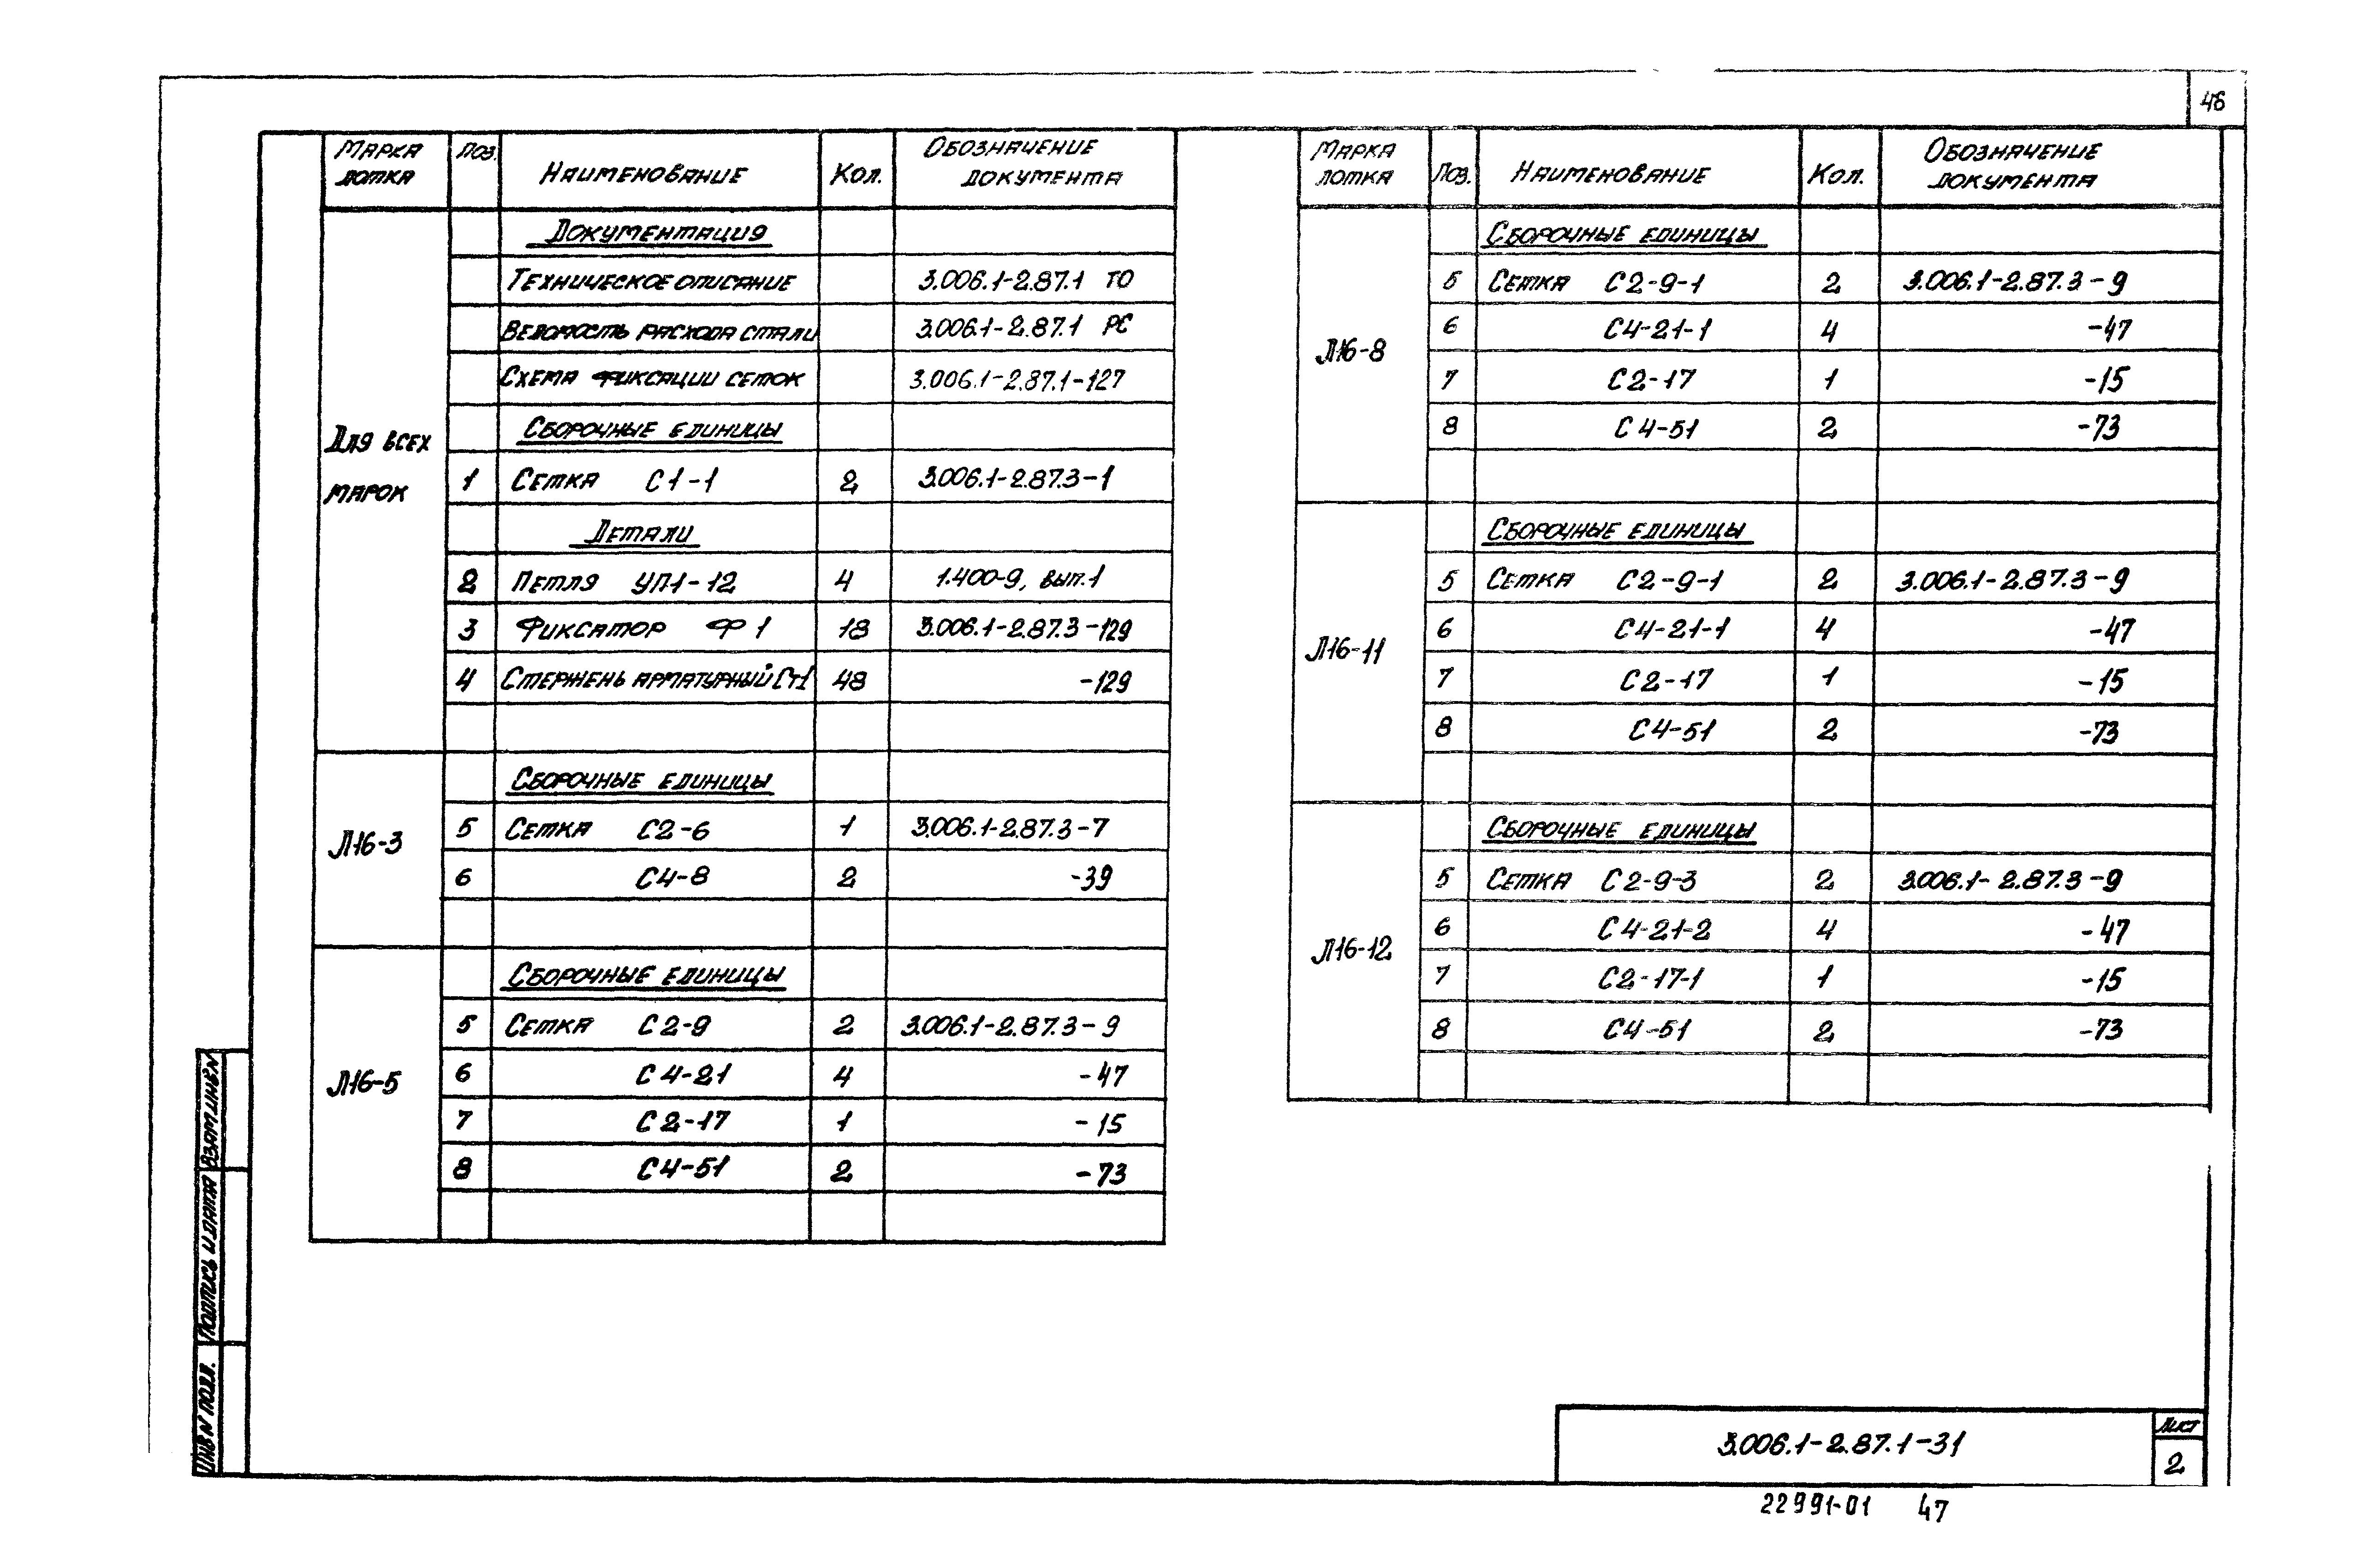 46
Марка лотка Поз. Наименование Кол. Обозначение документа
Для всех марок
Документация
Техническое описание 3.006.1-2.87.1 ТО
Ведомость расхода стали 3.006.1-2.87.1 РС
Схема фиксации сеток 3.006.1-2.87.1-127
Сборочные единицы
1 Сетка С1-1 2 3.006.1-2.87.3-1
Детали
2 Петля УП1-12 4 1.400-9, вып.1
3 Фиксатор Ф1 18 3.006.1-2.87.3-129
4 Стержень арматурный Ст1 48 -129
Л16-3
Сборочные единицы
5 Сетка С2-6 1 3.006.1-2.87.3-7
6 С4-8 2 -39
Л16-5
Сборочные единицы
5 Сетка С2-9 2 3.006.1-2.87.3-9
6 С4-21 4 -47
7 С2-17 1 -15
8 С4-51 2 -73
Марка лотка Поз. Наименование Кол. Обозначение документа
Л16-8
Сборочные единицы
5 Сетка С2-9-1 2 3.006.1-2.87.3-9
6 С4-21-1 4 -47
7 С2-17 1 -15
8 С4-51 2 -73
Л16-11
Сборочные единицы
5 Сетка С2-9-1 2 3.006.1-2.87.3-9
6 С4-21-1 4 -47
7 С2-17 1 -15
8 С4-51 2 -73
Л16-12
Сборочные единицы
5 Сетка С2-9-3 2 3.006.1-2.87.3-9
6 С4-21-2 4 -47
7 С2-17-1 1 -15
8 С4-51 2 -73
Инв N подл. Подпись и дата Взам.инв.N
3.006.1-2.87.1-31
Лист
2
22991-01 47